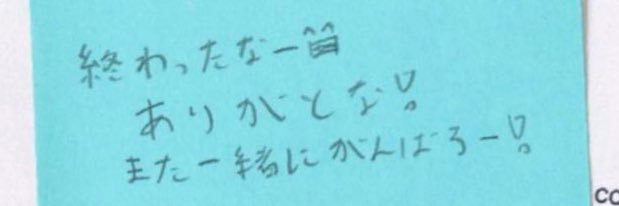 終わったなー
ありがとな!
また一緒にがんばろー!